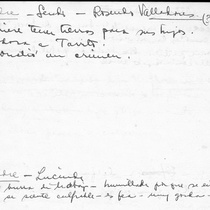 dre - Senda - Rosendo Valladares (
iere tener tierras para sus hijos.
dosa a Tarrito.
ometió un crimen.
dre - Lucinda
burra de trabajo - humillada porque se
se siente culpable - es fea - muy gorda -